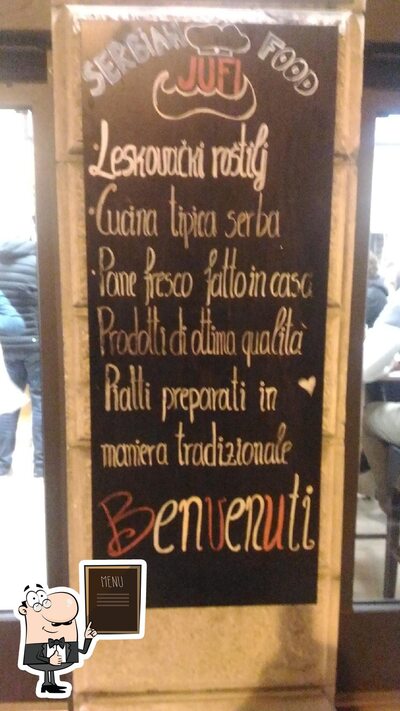 SERBIAN FOOD
JUFI
• Leskovački roštilj
• Cucina tipica serba
• Pane fresco fatto in casa
Prodotti di ottima qualità
Piatti preparati in
maniera tradizionale
Benvenuti
MENU